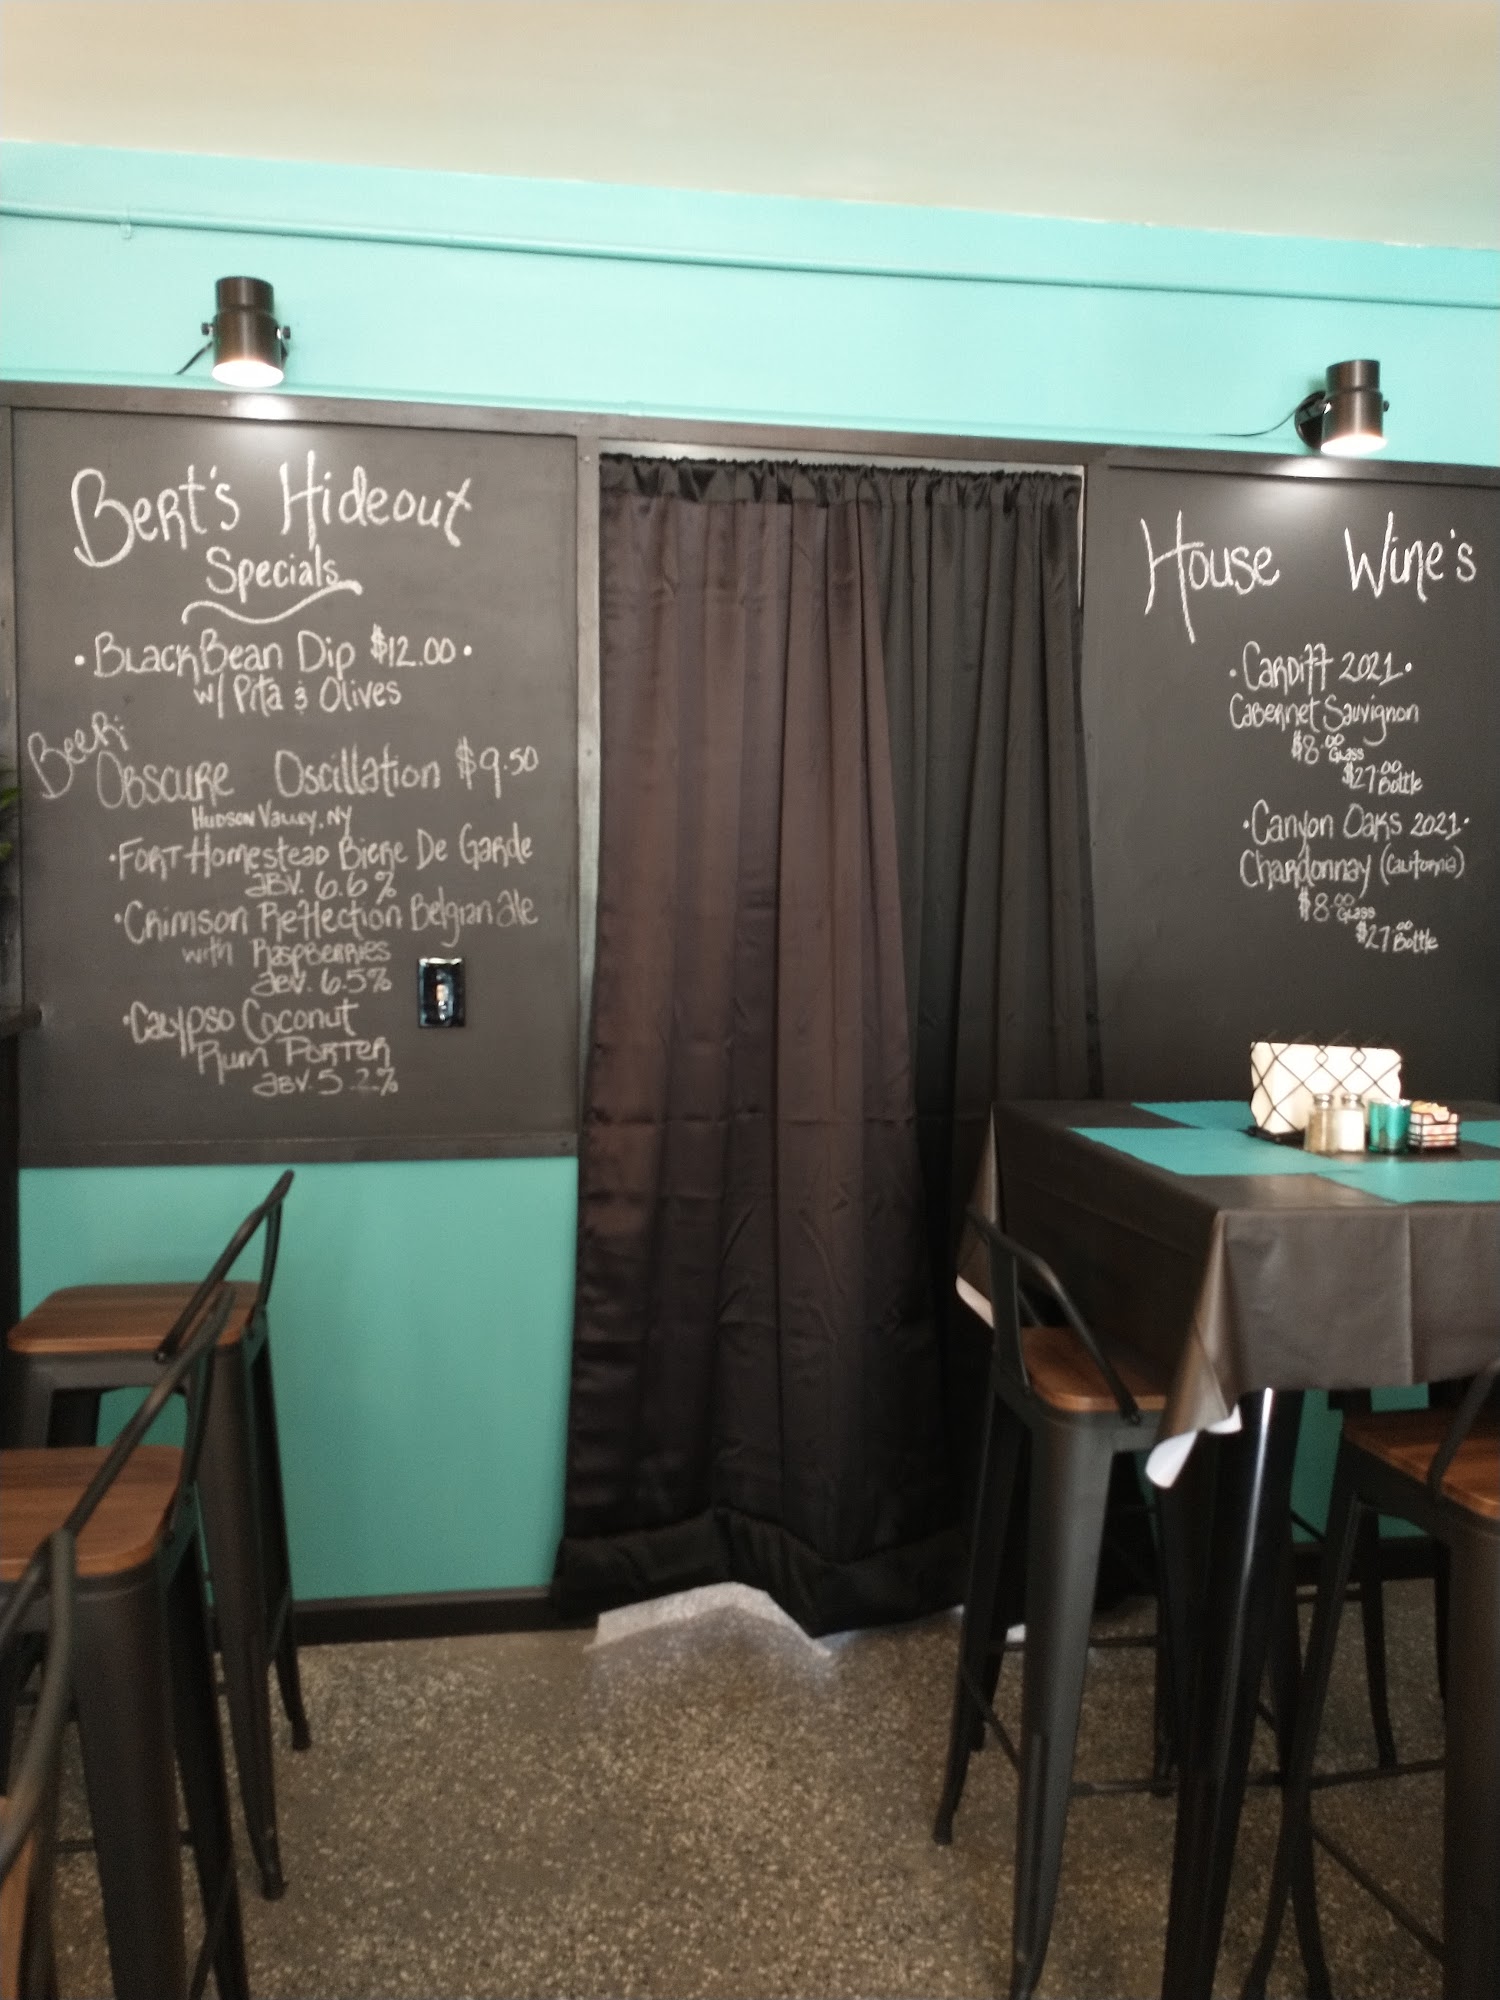 Bert's Hideout
Specials
• Black Bean Dip $12.00 •
w/ Pita & Olives
Beer:
Obscure Oscillation $9.50
Hudson Valley, NY
• Fort Homestead Biere De Garde
ABV. 6.6%
• Crimson Reflection Belgian Ale
with Raspberries
ABV. 6.5%
• Calypso Coconut
Rum Porter
ABV. 5.2%
House Wine's
• Cardiff 2021 •
Cabernet Sauvignon
$8.00 Glass
$27.00 Bottle
• Canyon Oaks 2021 •
Chardonnay (California)
$8.00 Glass
$27.00 Bottle